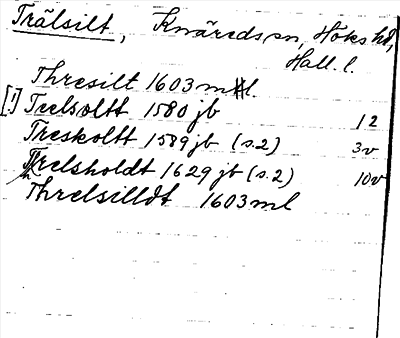 Trälsilt, Knäreds sn, Höks hd,
Hall. l.
Thresilt 1603 ml.
[!] Trelsoltt 1580 jb 12
Treskoltt 1589 jb (s. 2) 3v
Threlsholdt 1629 jb (s. 2) 10v
Threlsilldt 1603 ml